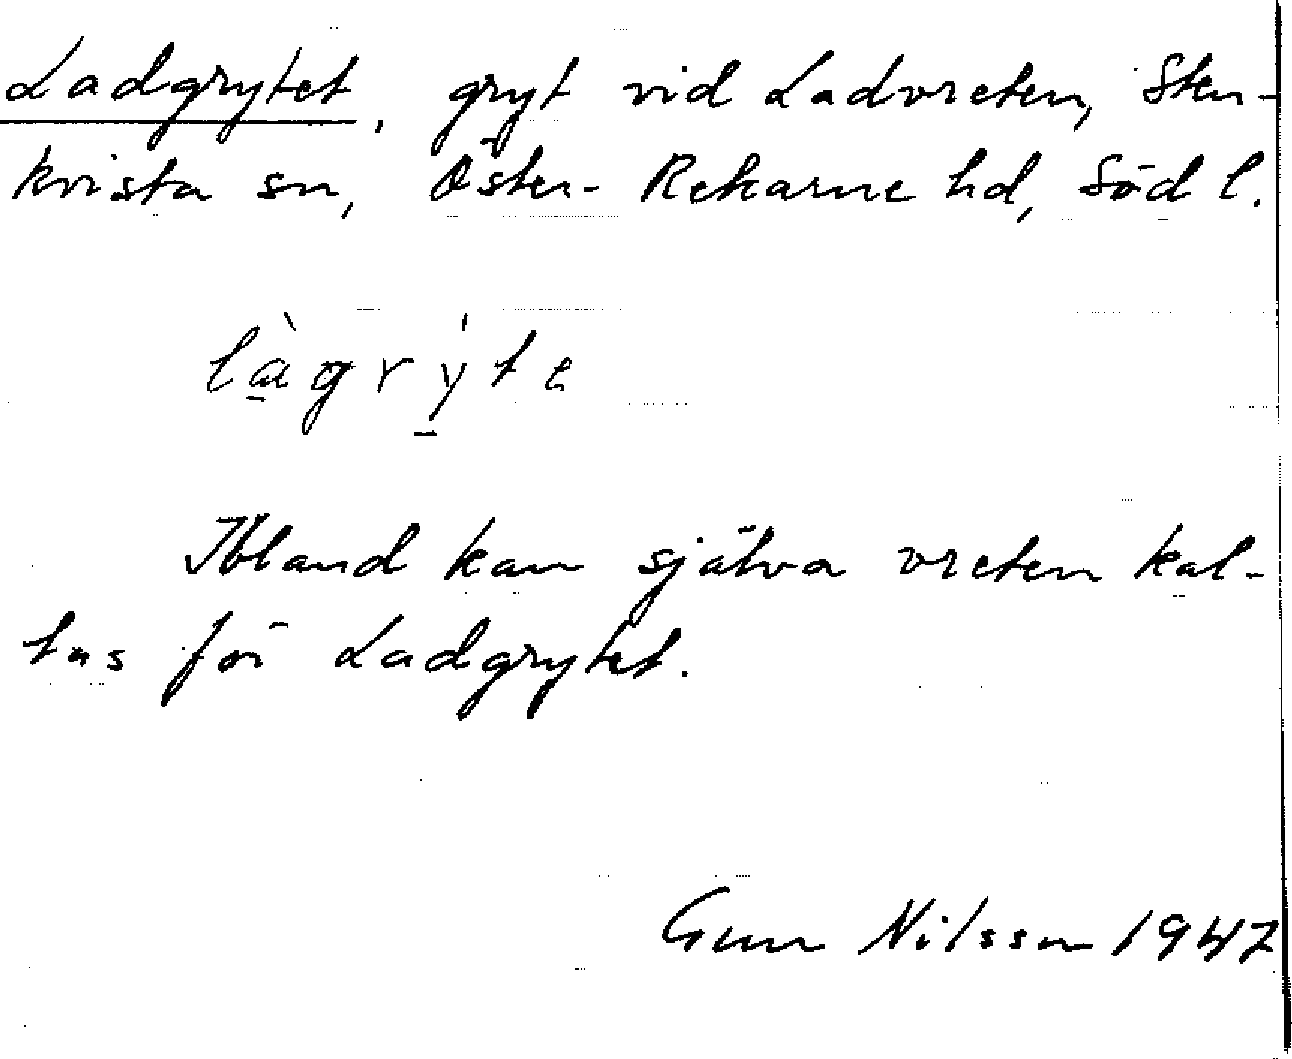 Ladgrytet, gryt vid Ladvreten, Sten-
kvista sn, Öster-Rekarne hd, Söd l.
là̱grý̱te
Ibland kan själva vreten kal-
las för Ladgrytet.
Gun Nilsson 1947